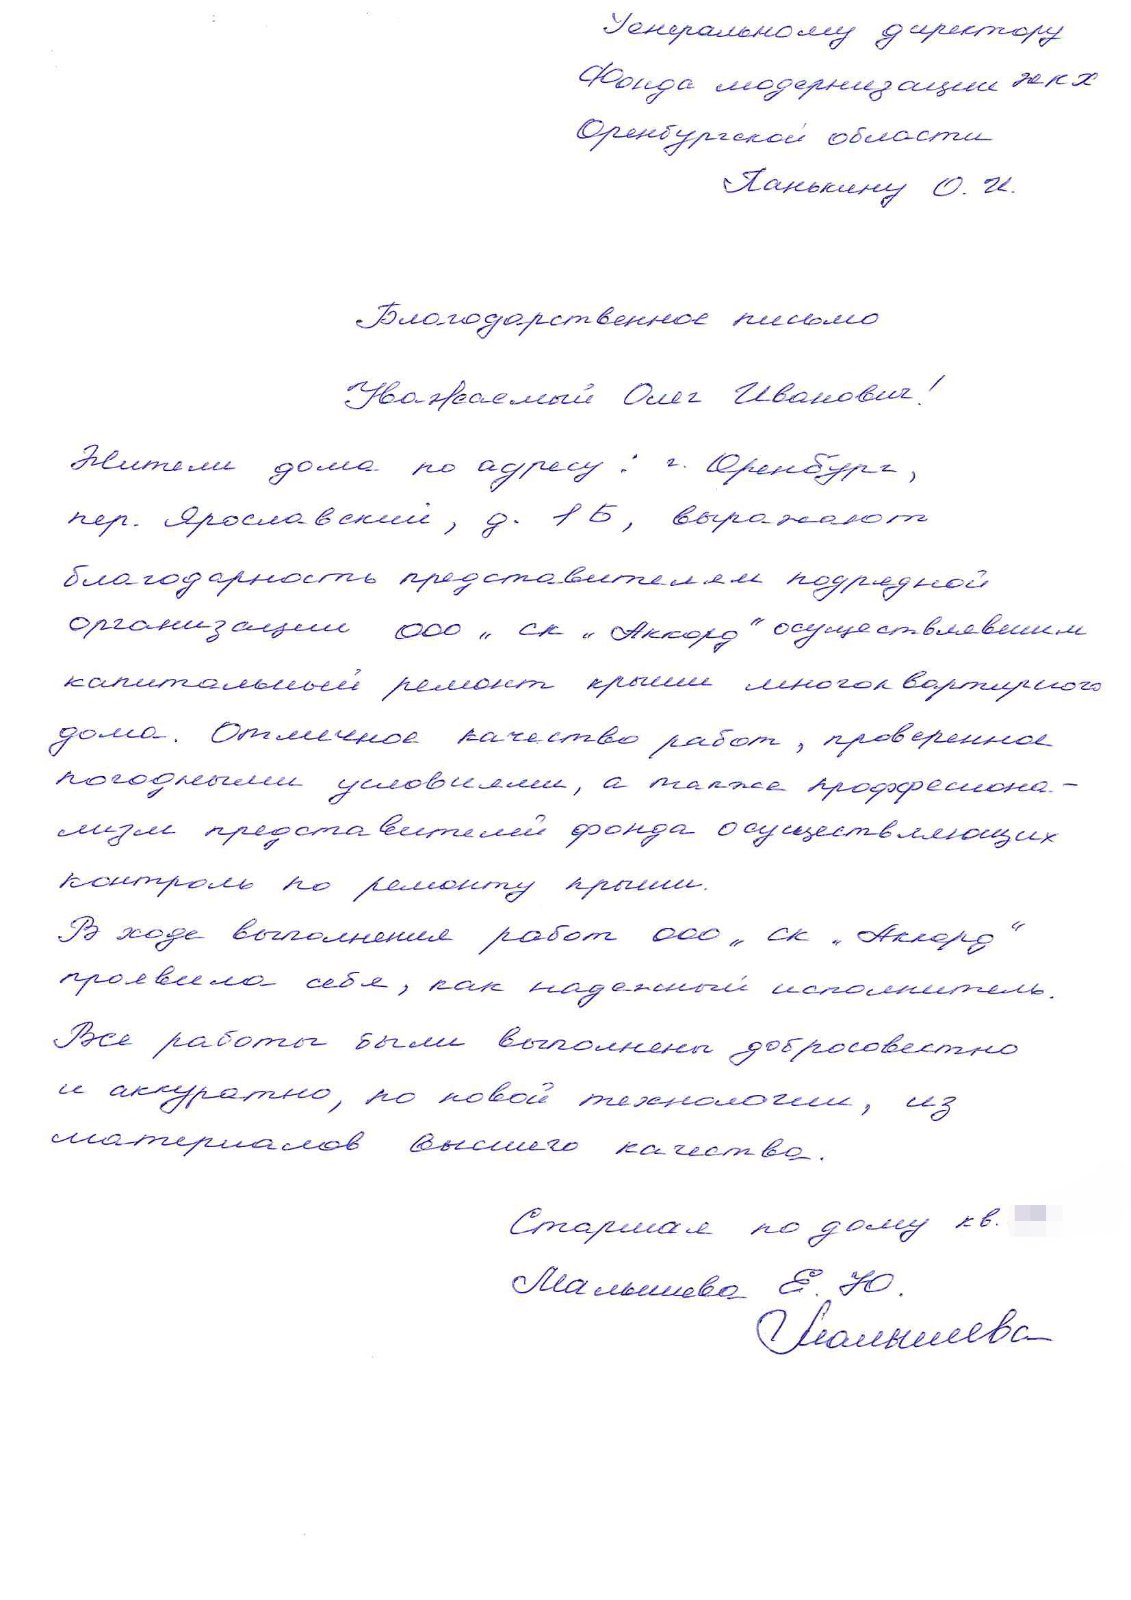 Генеральному директору
Фонда модернизации жкх
Оренбургской области
Панькину О. И.
Благодарственное письмо
Уважаемый Олег Иванович!
Жители дома по адресу: г. Оренбург,
пер. Ярославский, д. 1Б, выражают
благодарность представителям подрядной
организации ООО „ СК „Аккорд“ осуществлявшим
капитальный ремонт крыши многоквартирного
дома. Отличное качество работ, проверенное
погодными условиями, а также проффесиона-
лизм представителей фонда осуществляющих
контроль по ремонту крыши.
В ходе выполнения работ ООО „ СК „Аккорд“
проявила себя, как надежный исполнитель.
Все работы были выполнены добросовестно
и аккуратно, по новой технологии, из
материалов высшего качества.
Старшая по дому кв.
Малышева Е. Ю.
Малышева